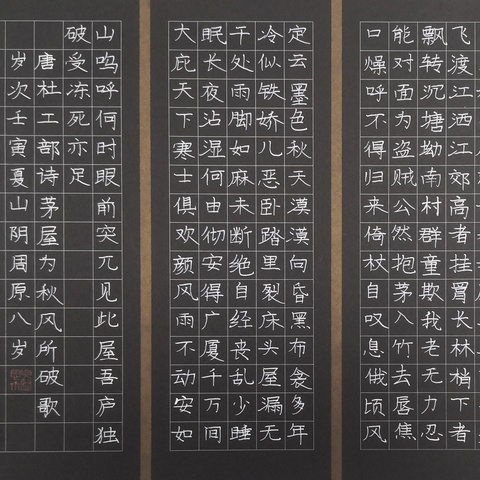 飞渡江洒江郊高者挂罥长林梢下者
飘转沉塘坳南村群童欺我老无力忍
能对面为盗贼公然抱茅入竹去唇焦
口燥呼不得归来倚杖自叹息俄顷风
定云墨色秋天漠漠向昏黑布衾多年
冷似铁娇儿恶卧踏里裂床头屋漏无
干处雨脚如麻未断绝自经丧乱少睡
眠长夜沾湿何由彻安得广厦千万间
大庇天下寒士俱欢颜风雨不动安如
山呜呼何时眼前突兀见此屋吾庐独
破受冻死亦足
唐杜工部诗茅屋为秋风所破歌
岁次壬寅夏山阴周原八岁